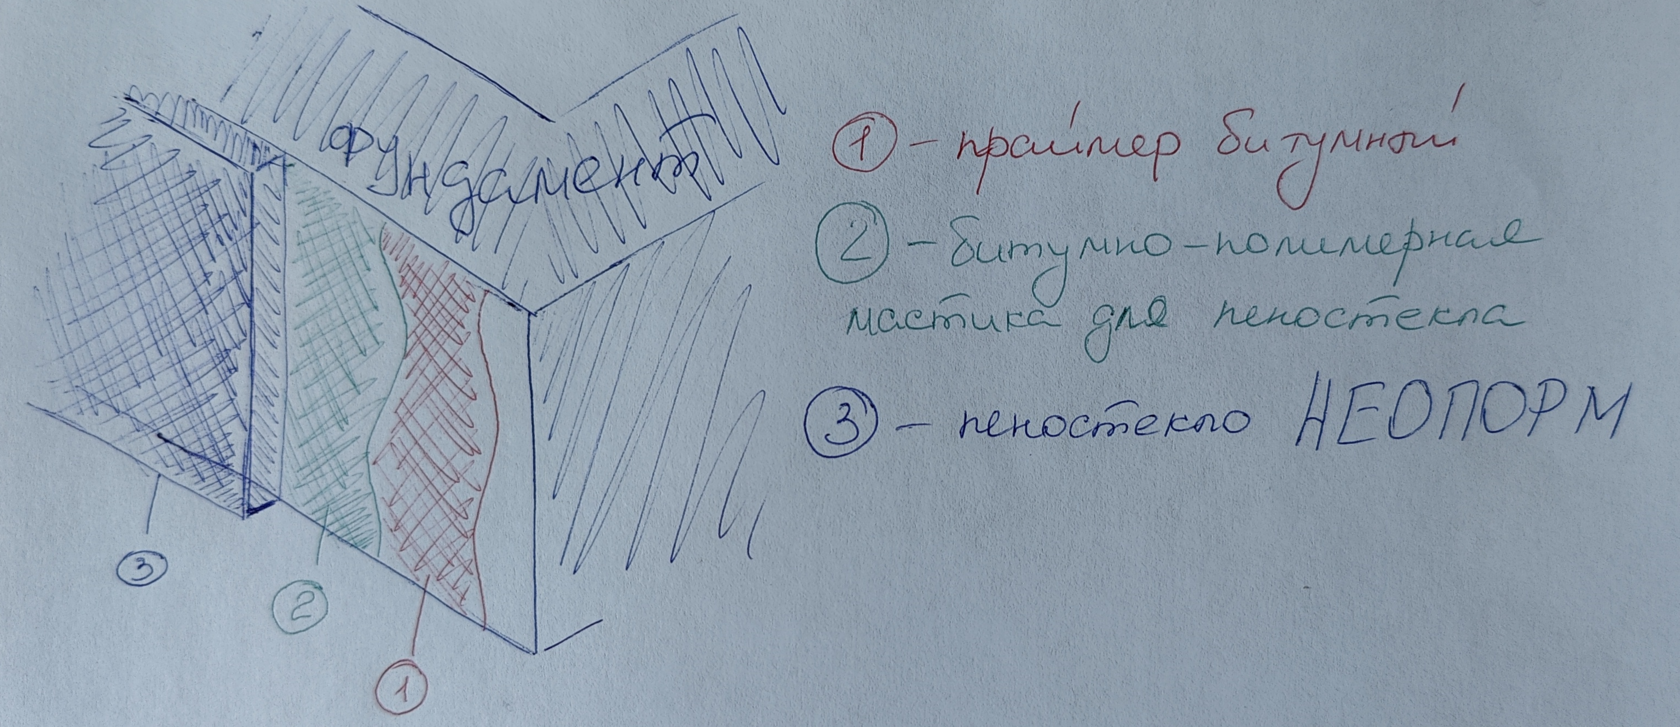 фундамент
① – праймер битумный
② – битумно-полимерная
мастика для пеностекла
③ – пеностекло НЕОПОРМ
③
②
①